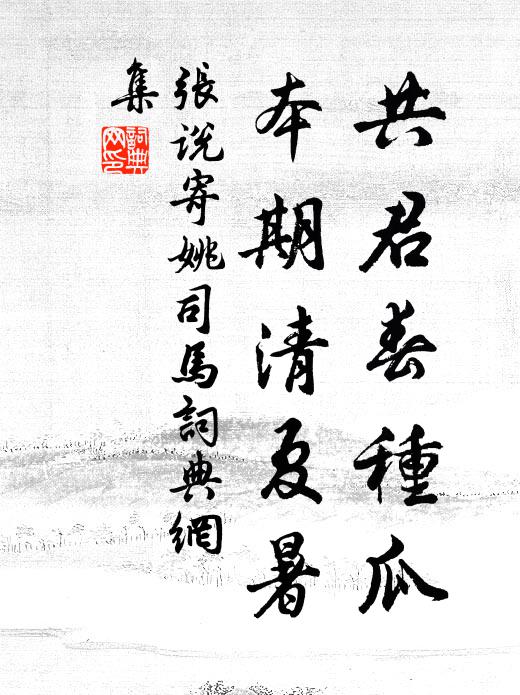 共君春種瓜
本期清夏暑
張說寄姚司馬詞典網
集
詞典
网印